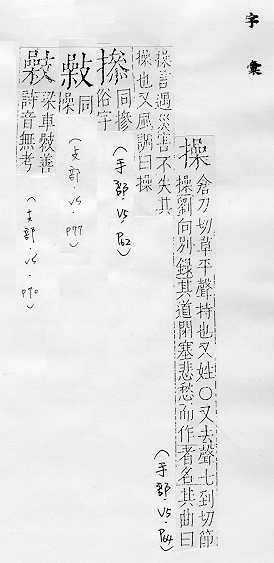 字彙
操 倉刀切草平聲持也又姓〇又去聲七到切節
操劉向別錄其道閉塞悲愁而作者名其曲曰
(手部.V5.P64)
操言遇災害不失其
操也又風調曰操
摻 同摻
俗字
(手部.V5.P62)
同
操
(攴部.V5.P77)
梁車㪇善
詩音無考